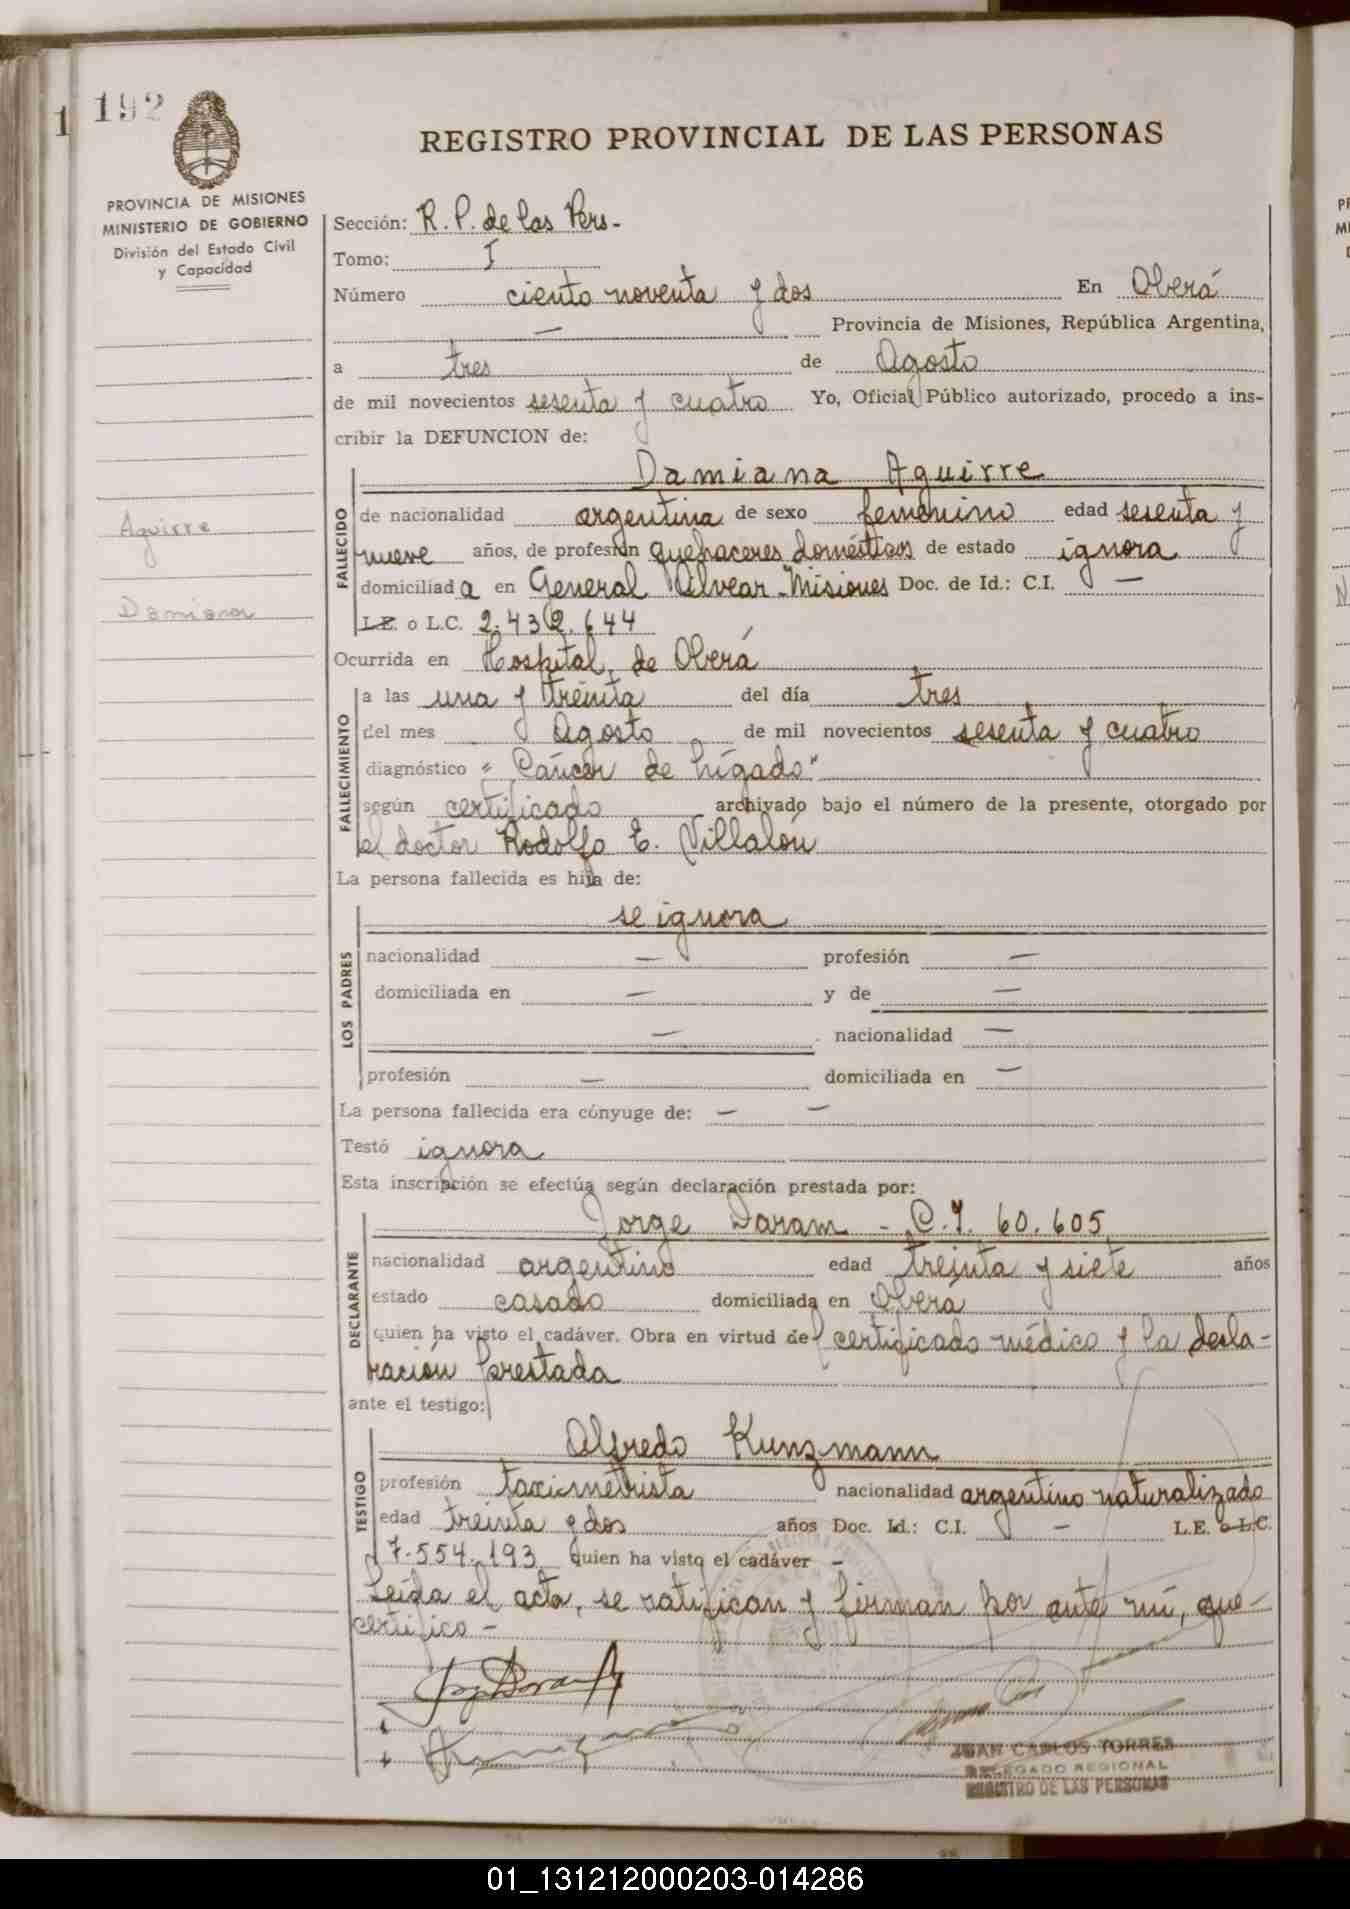 192
1
PROVINCIA DE MISIONES
MINISTERIO DE GOBIERNO
División del Estado Civil
y Capacidad
REGISTRO PROVINCIAL DE LAS PERSONAS
Sección: R. P. de las Pers.-
Tomo: I
Número ciento noventa y dos En Oberá
— Provincia de Misiones, República Argentina,
a tres de Agosto
de mil novecientos sesenta y cuatro Yo, Oficial Público autorizado, procedo a ins-
cribir la DEFUNCION de:
Aguirre
Damiana
FALLECIDO
Damiana Aguirre
de nacionalidad argentina de sexo femenino edad sesenta y
nueve años, de profesión quehaceres domésticos de estado ignora
domiciliada en General Alvear - Misiones Doc. de Id.: C.I. —
L.E. o L.C. 2.432.644
Ocurrida en Hospital de Oberá
FALLECIMIENTO
a las una y treinta del día tres
del mes Agosto de mil novecientos sesenta y cuatro
diagnóstico "Cáncer de hígado"
según certificado archivado bajo el número de la presente, otorgado por
el doctor Rodolfo E. Villalón
La persona fallecida es hija de:
LOS PADRES
se ignora
nacionalidad — profesión —
domiciliada en — y de —
— nacionalidad —
profesión — domiciliada en —
La persona fallecida era cónyuge de: — —
Testó ignora
Esta inscripción se efectúa según declaración prestada por:
DECLARANTE
Jorge Daram - C.I. 60.605
nacionalidad argentino edad treinta y siete años
estado casado domiciliada en Oberá
quien ha visto el cadáver. Obra en virtud de certificado médico y la decla-
ración prestada
ante el testigo:
TESTIGO
Alfredo Kunzmann
profesión taximetrista nacionalidad argentino naturalizado
edad treinta y dos años Doc. Id.: C.I. — L.E. o L.C.
7.554.193 quien ha visto el cadáver -
Leída el acta, se ratifican y firman por ante mí, que
certifico -
JUAN CARLOS TORRES
DELEGADO REGIONAL
REGISTRO DE LAS PERSONAS
01_131212000203-014286